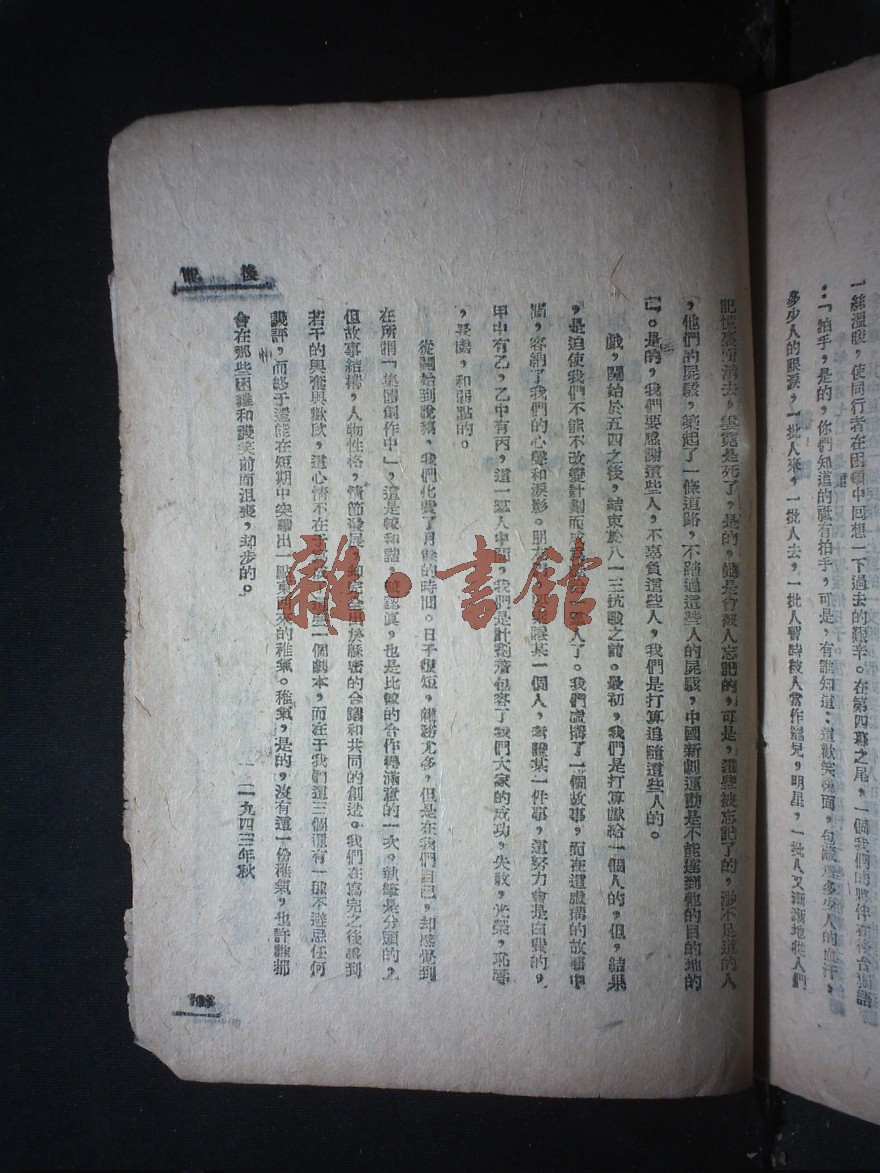 一絲溫暖，使同行者在困頓中回想一下過去的艱辛。在第四幕之尾，一個我們的夥伴有後台獨語
：「拍手，是的，你們知道的祗有拍手，可是，有誰知道：這歡笑後面，包藏着多少人的血汗，
多少人的眼淚，一批人來，一批人去，一批人暫時被人當作寵兒，明星，一批人又漸漸地從人們
記憶裏消去，或竟是死了，是的，他是會被人忘記的，可是，這些被忘記了的，渺不足道的人
，他們的屍骸，築起了一條道路，不踏過這些人的屍骸，中國新劇運動是不能達到牠的目的地的
已。是的，我們要感謝這些人，不辜負這些人，我們是打算追隨這些人的。
戲，開始於五四之後，結束於八一三抗戰之前。最初，我們是打算獻給一個人的，但，結果
，是迫使我們不能不改變計劃而人了。我們虛構了一個故事，而在這虛構的故事中
間，容納了我們的心聲和淚影。朋友某一個人，考證某一件事，這努力會是白費的，
甲中有乙，乙中有丙，這一羣人中間，我們是計劃着包容了我們大家的成功，失敗，光榮，恥辱
，長處，和弱點的。
從開始到脫稿，我們化費了月餘的時間。日子很短，雜務尤多，但是在我們自己，却感覺到
在所謂「集體創作中」，這是較和諧，較認真，也是比較的合作得滿意的一次。執筆是分頭的，
但故事結構，人物性格，情節發展，却完全由於縝密的會議和共同的創造。我們在寫完之後感到
若干的興奮與歡欣，這心情不在于一個劇本，而在于我們這三個還有一顆不避忌任何
譏評，而終于還能在短期中突擊出一點東西來的稚氣。稚氣，是的，沒有這一份稚氣，也許誰都
會在那些困難和譏笑前面沮喪，却步的。
一九四三年秋
後記
雜·書館